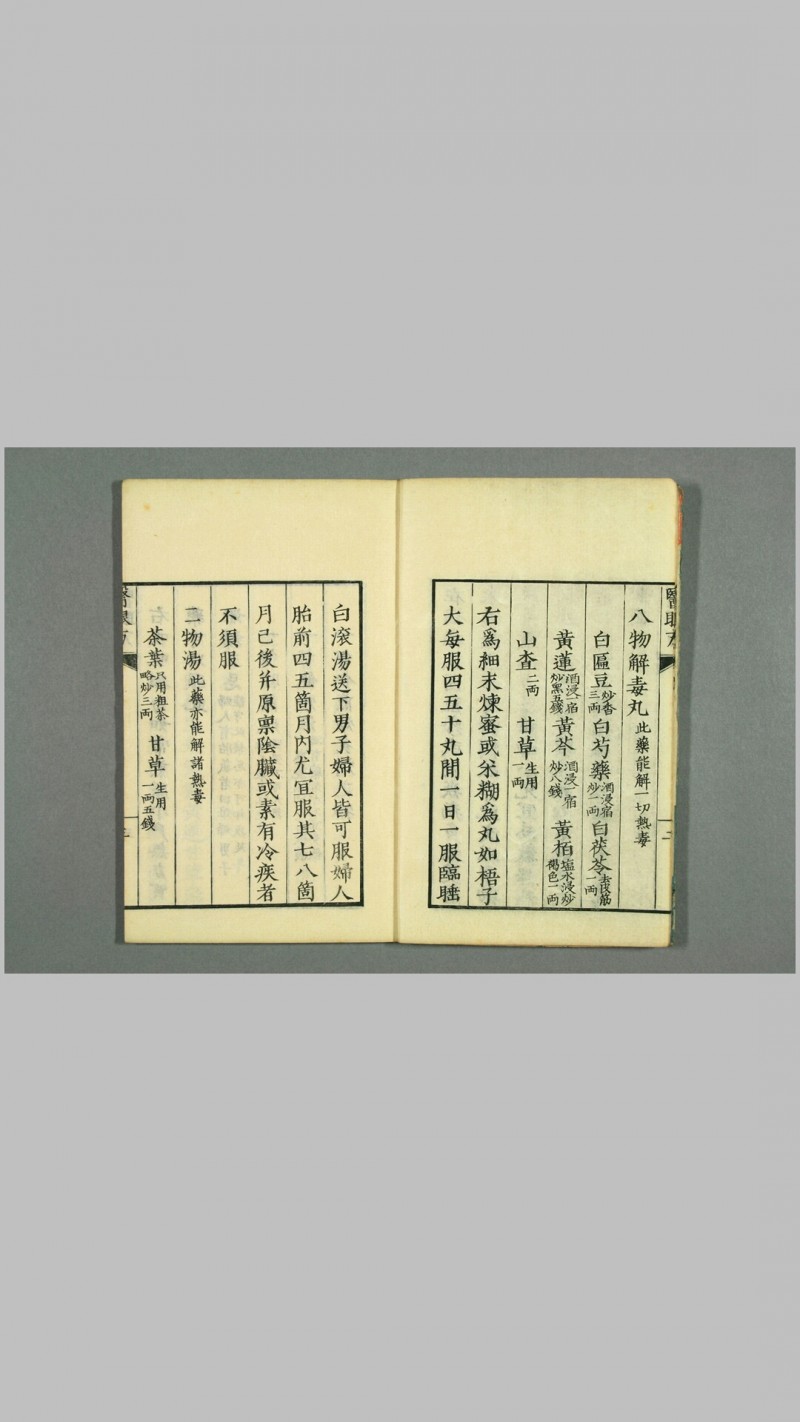 八物解毒丸 此藥能解一切熱毒
白匾豆 炒香三両 白芍藥 酒浸一宿炒一両 白茯苓 去皮筋一両
黃蓮 酒浸一宿炒黑五錢 黃芩 酒浸一宿炒八錢 黃栢 塩水浸炒褐色一両
山查 二両 甘草 生用一両
右爲細末煉蜜或米糊爲丸如梧子
大每服四五十丸間一日一服臨睡
白滾湯送下男子婦人皆可服婦人
胎前四五箇月內尤宜服其七八箇
月已後并原禀陰臟或素有冷疾者
不須服
二物湯 此藥亦能解諸熱毒
茶葉 只用粗茶略炒三両 甘草 生用一両五錢